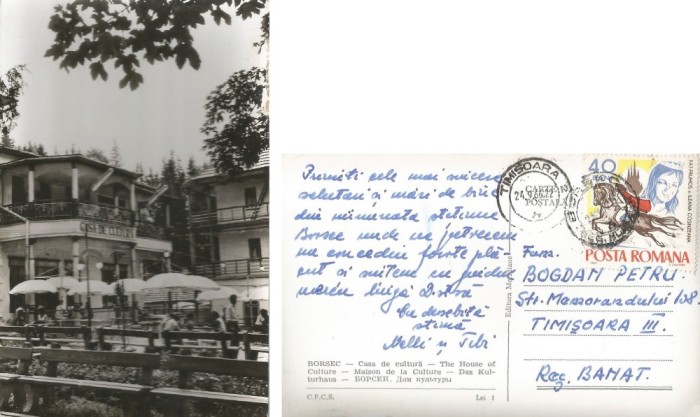 CASA DE CULTURA
Primiți cele mai sincere
salutări și mări de bine
din minunata stațiune
Borsec unde ne petrecem
un concediu foarte plă-
cut și suntem un
lîngă
Cu deosebită
stimă
Nelli și Tibi
BORSEC — Casa de cultură — The House of
Culture — Maison de la Culture — Das Kul-
turhaus — БОРСЕК. Дом культуры
C.P.C.S.
Lei 1
Editura Meridiane
TIMIȘOARA
24.9.66.22
CARTE
POȘTALĂ
40
FĂT FRUMOS și ILEANA COSÎNZEANA
POSTA ROMANA
Fam.
BOGDAN PETRU
Str. Memorandului 108
TIMIȘOARA III.
Reg. BANAT.